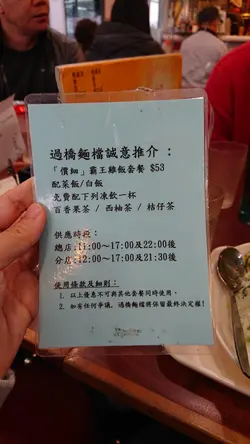 過橋麵檔誠意推介：
「償細」霸王雞飯套餐 $53
配菜飯/白飯
免費配下列凍飲一杯
百香果茶 / 西柚茶 / 桔仔茶
供應時段：
總店:11:00～17:00及22:00後
分店:12:00～17:00及21:30後
使用條款及細則：
1. 以上優惠不可與其他套餐同時使用。
2. 如有任何爭議，過橋麵檔將保留最終決定權!